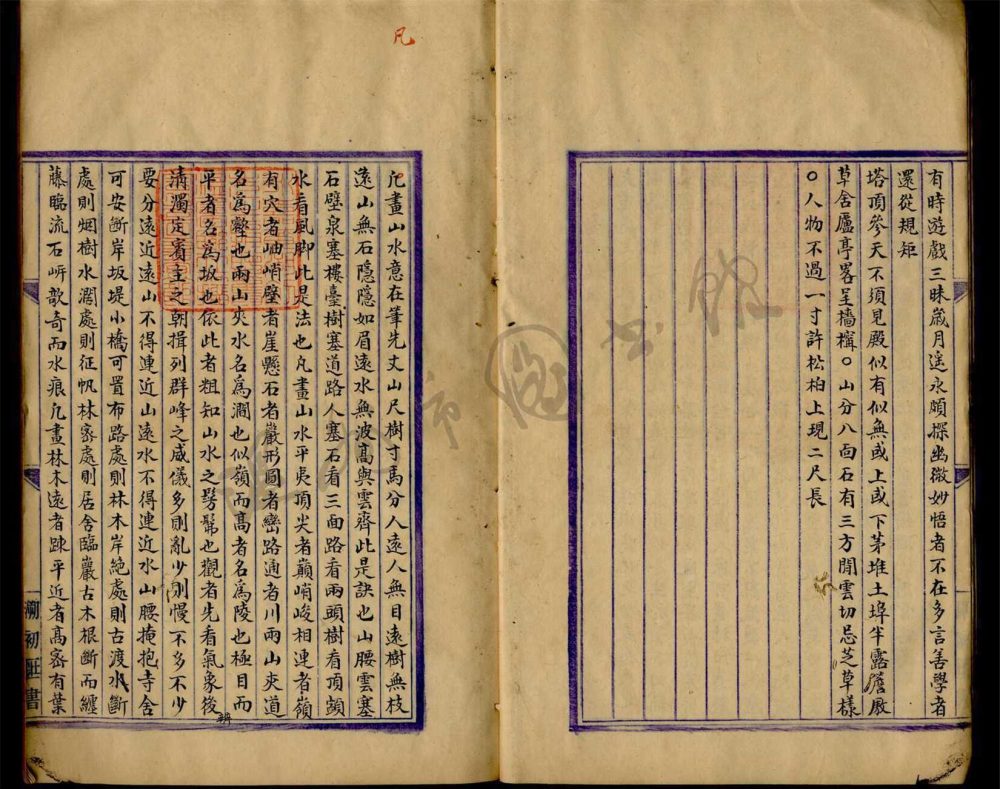 有時遊戲三昧歲月遥永頗探幽微妙悟者不在多言善學者
還從規矩
塔頂參天不須見殿似有似無或上或下茅堆土埠半露簷廒
草舍廬亭畧呈檣檸〇山分八面石有三方閒雲切忌芝草樣
〇人物不過一寸許松柏上現二尺長
凡
凢畫山水意在筆先丈山尺樹寸馬分人遠人無目遠樹無枝
遠山無石隱隱如眉遠水無波高與雲齊此是訣也山腰雲塞
石壁泉塞樓臺樹塞道路人塞石看三面路看兩頭樹看頂顗
水看風脚此是法也凡畫山水平夷頂尖者巔峭峻相連者嶺
有穴者岫峭壁者崖懸石者巖形圓者巒路通者川兩山夾道
名爲壑也兩山夾水名爲澗也似嶺而高者名爲陵也極目而
平者名爲坂也依此者粗知山水之髣髴也觀者先看氣象後
辨
清濁定賓主之朝揖列群峰之威儀多則亂少則慢不多不少
要分遠近遠山不得連近山遠水不得連近水山腰掩抱寺舍
可安斷岸坂堤小橋可置布路處則林木岸絶處則古渡水斷
處則烟樹水濶處則征帆林密處則居舍臨巖古木根斷而纏
藤臨流石岍歌奇而水痕凢畫林木遠者踈平近者高密有葉